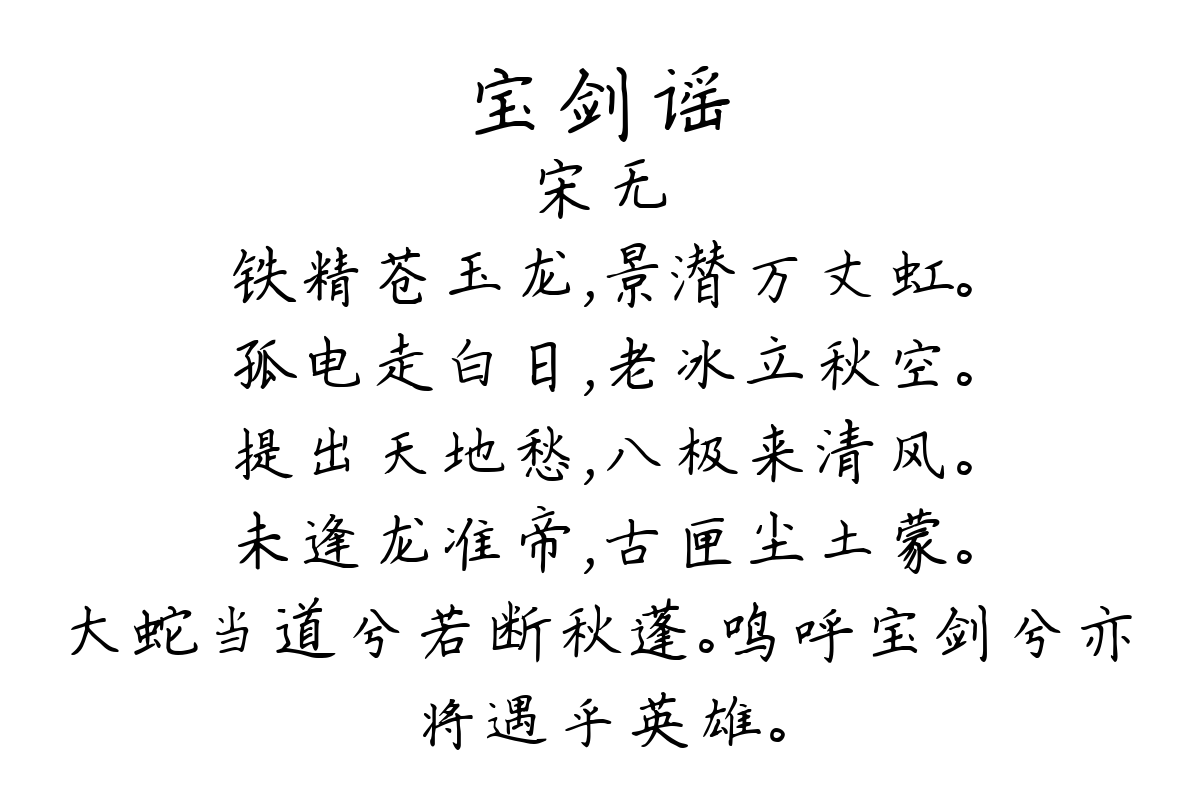 宝剑谣
宋无
铁精苍玉龙,景潜万丈虹。
孤电走白日,老冰立秋空。
提出天地愁,八极来清风。
未逢龙准帝,古匣尘土蒙。
大蛇当道兮若断秋蓬。鸣呼宝剑兮亦
将遇乎英雄。